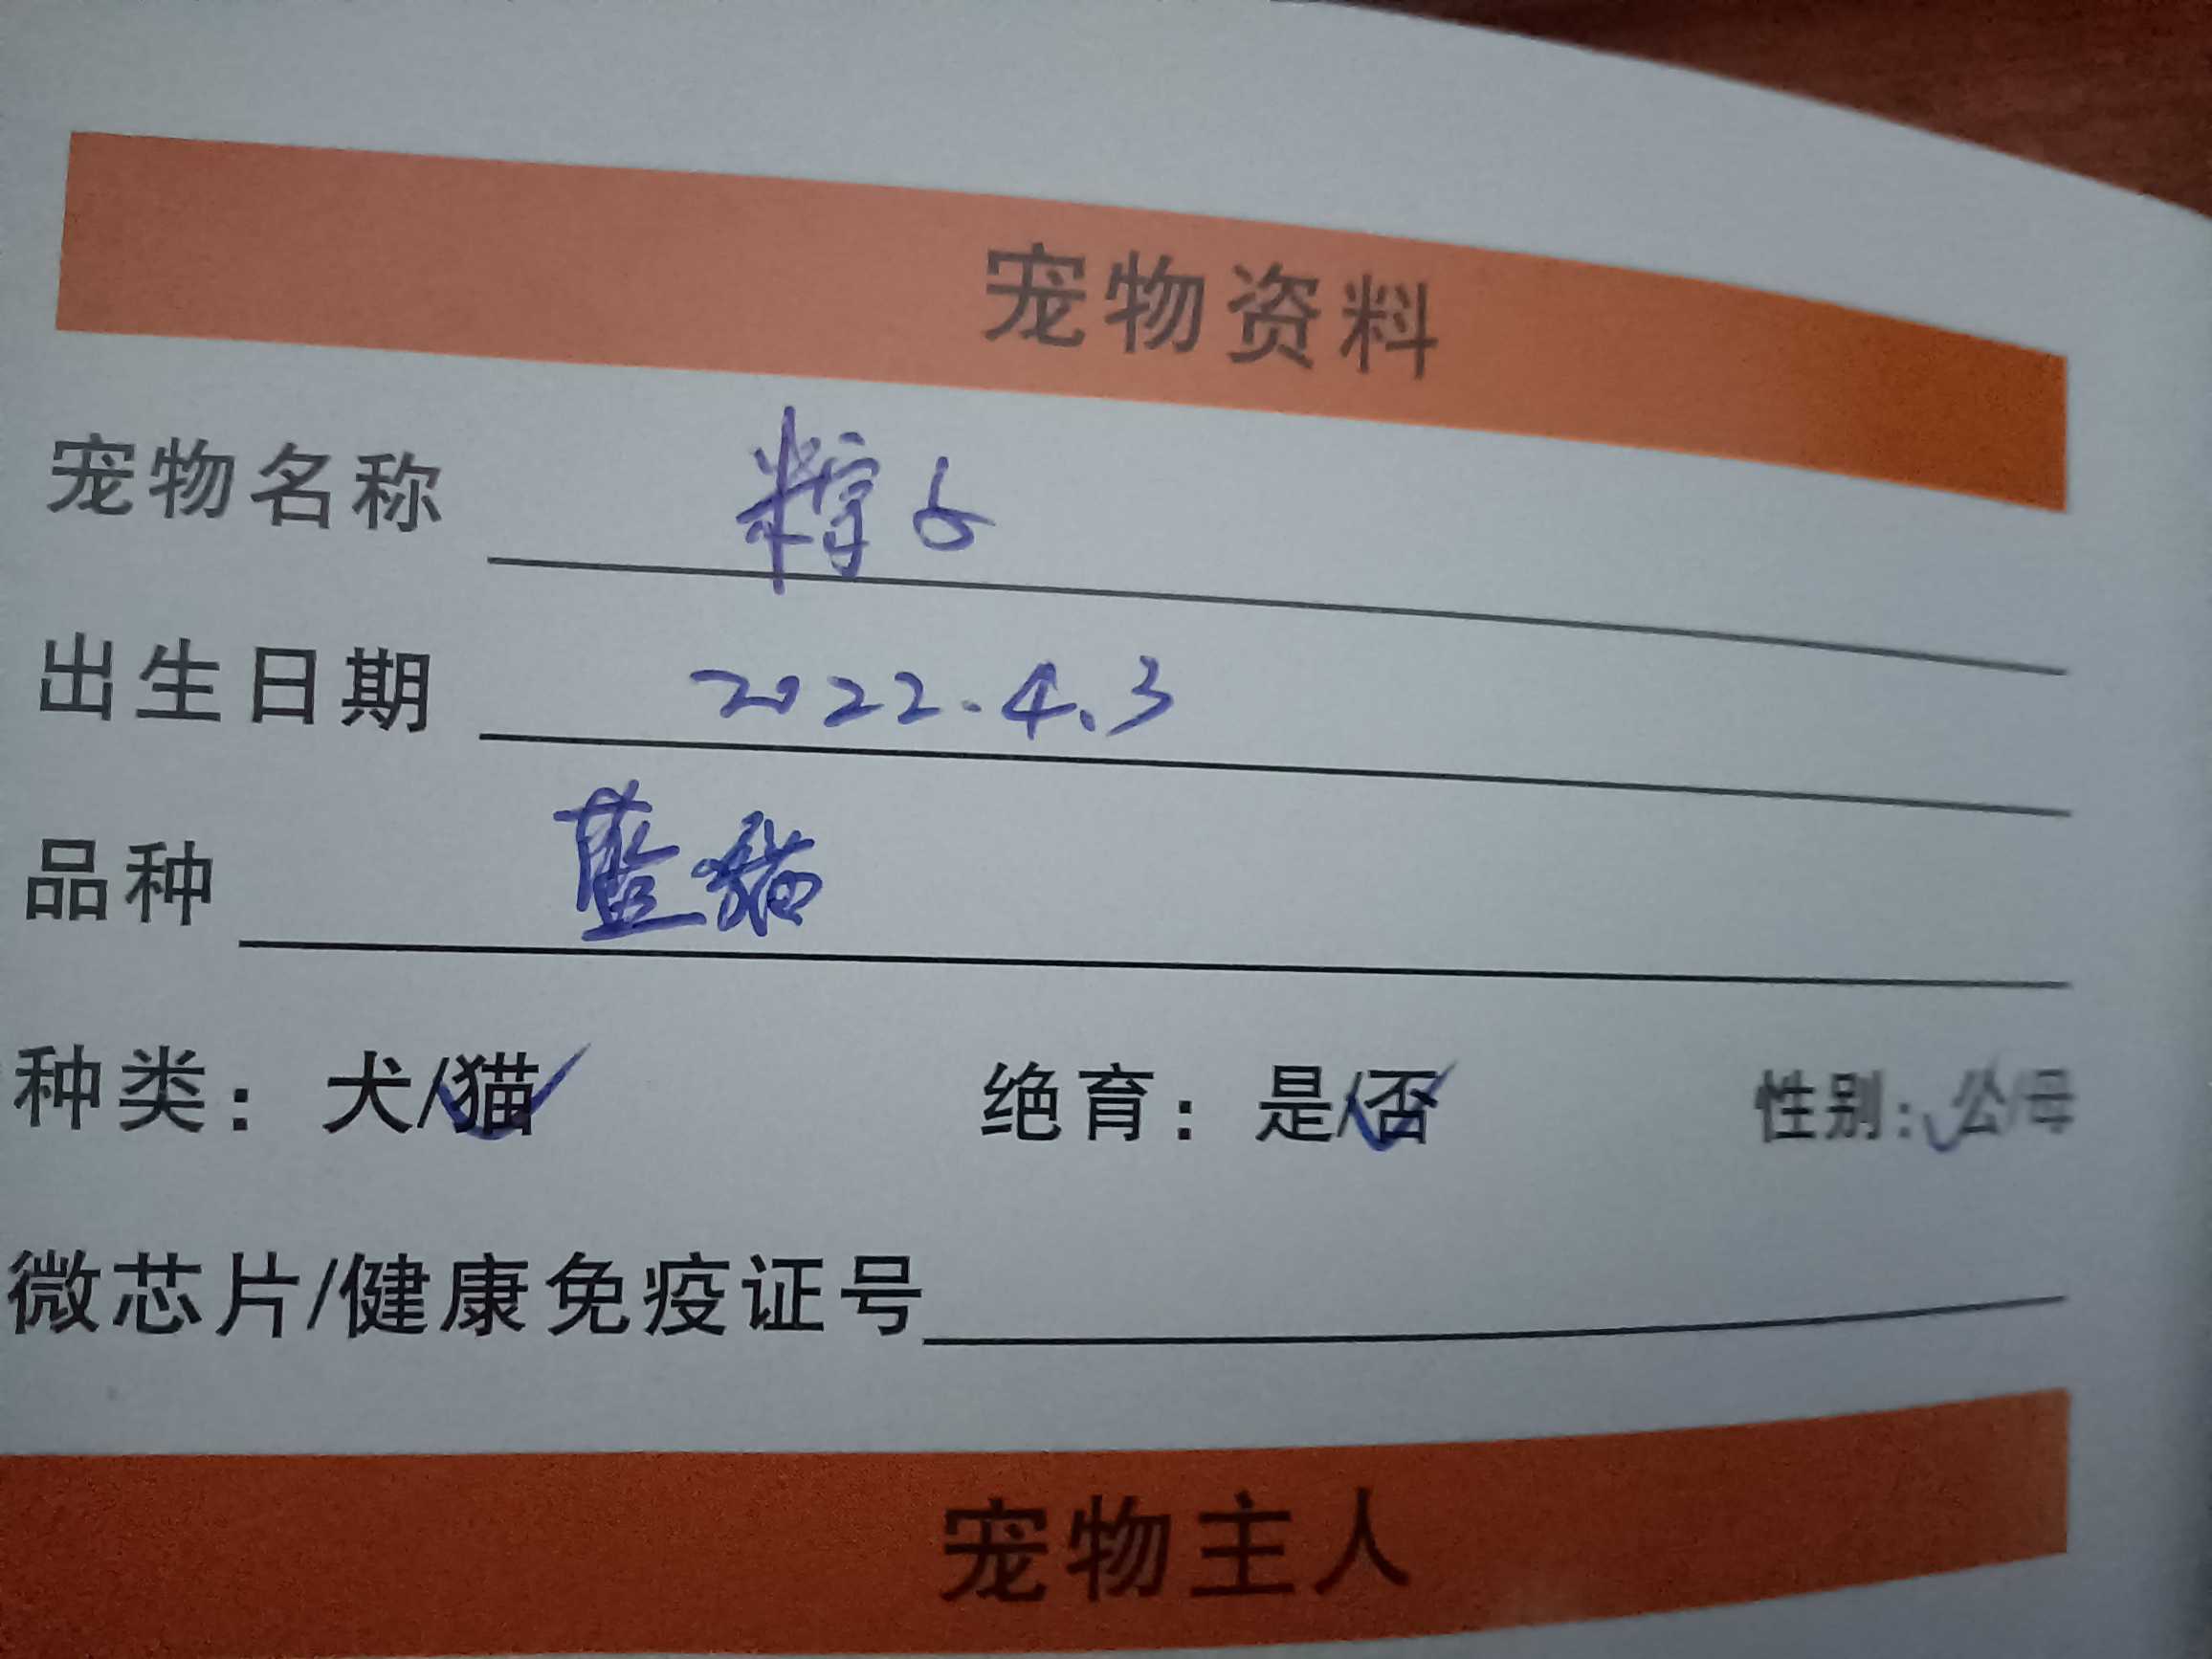 宠物资料
宠物名称 粽子
出生日期 2022.4.3
品种 藍猫
种类：犬/猫 绝育：是/否 性别：公/母
微芯片/健康免疫证号
宠物主人